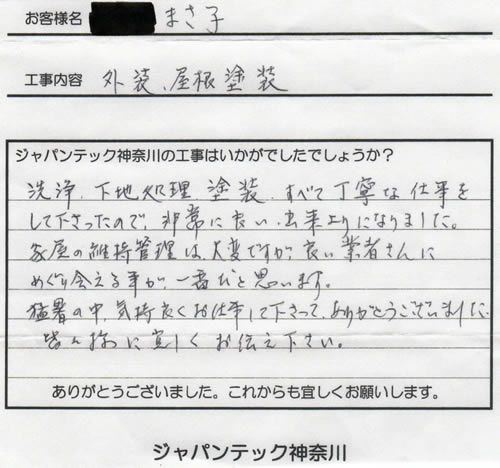 お客様名 まさ子
工事内容 外装、屋根塗装
ジャパンテック神奈川の工事はいかがでしたでしょうか？
洗浄、下地処理 塗装、すべて丁寧な仕事を
して下さったので、非常に良い出来上りになりました。
家屋の維持管理は、大変ですが、良い業者さんに
めぐり会える事が、一番だと思います。
猛暑の中、気持良くお仕事して下さって、ありがとうございました
皆々様に宜しくお伝え下さい。
ありがとうございました。これからも宜しくお願いします。
ジャパンテック神奈川